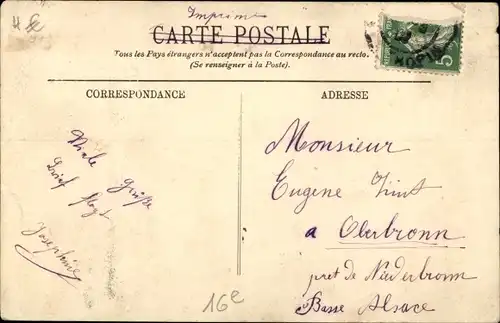 Imprimé
CARTE POSTALE
Tous les Pays étrangers n'acceptent pas la Correspondance au recto.
(Se renseigner à la Poste).
CORRESPONDANCE
ADRESSE
Viele Grüße
Brief folgt
Josephine
Monsieur
Eugène Zint
a Oberbronn
pret de Niederbronn
Basse Alsace
16e
5